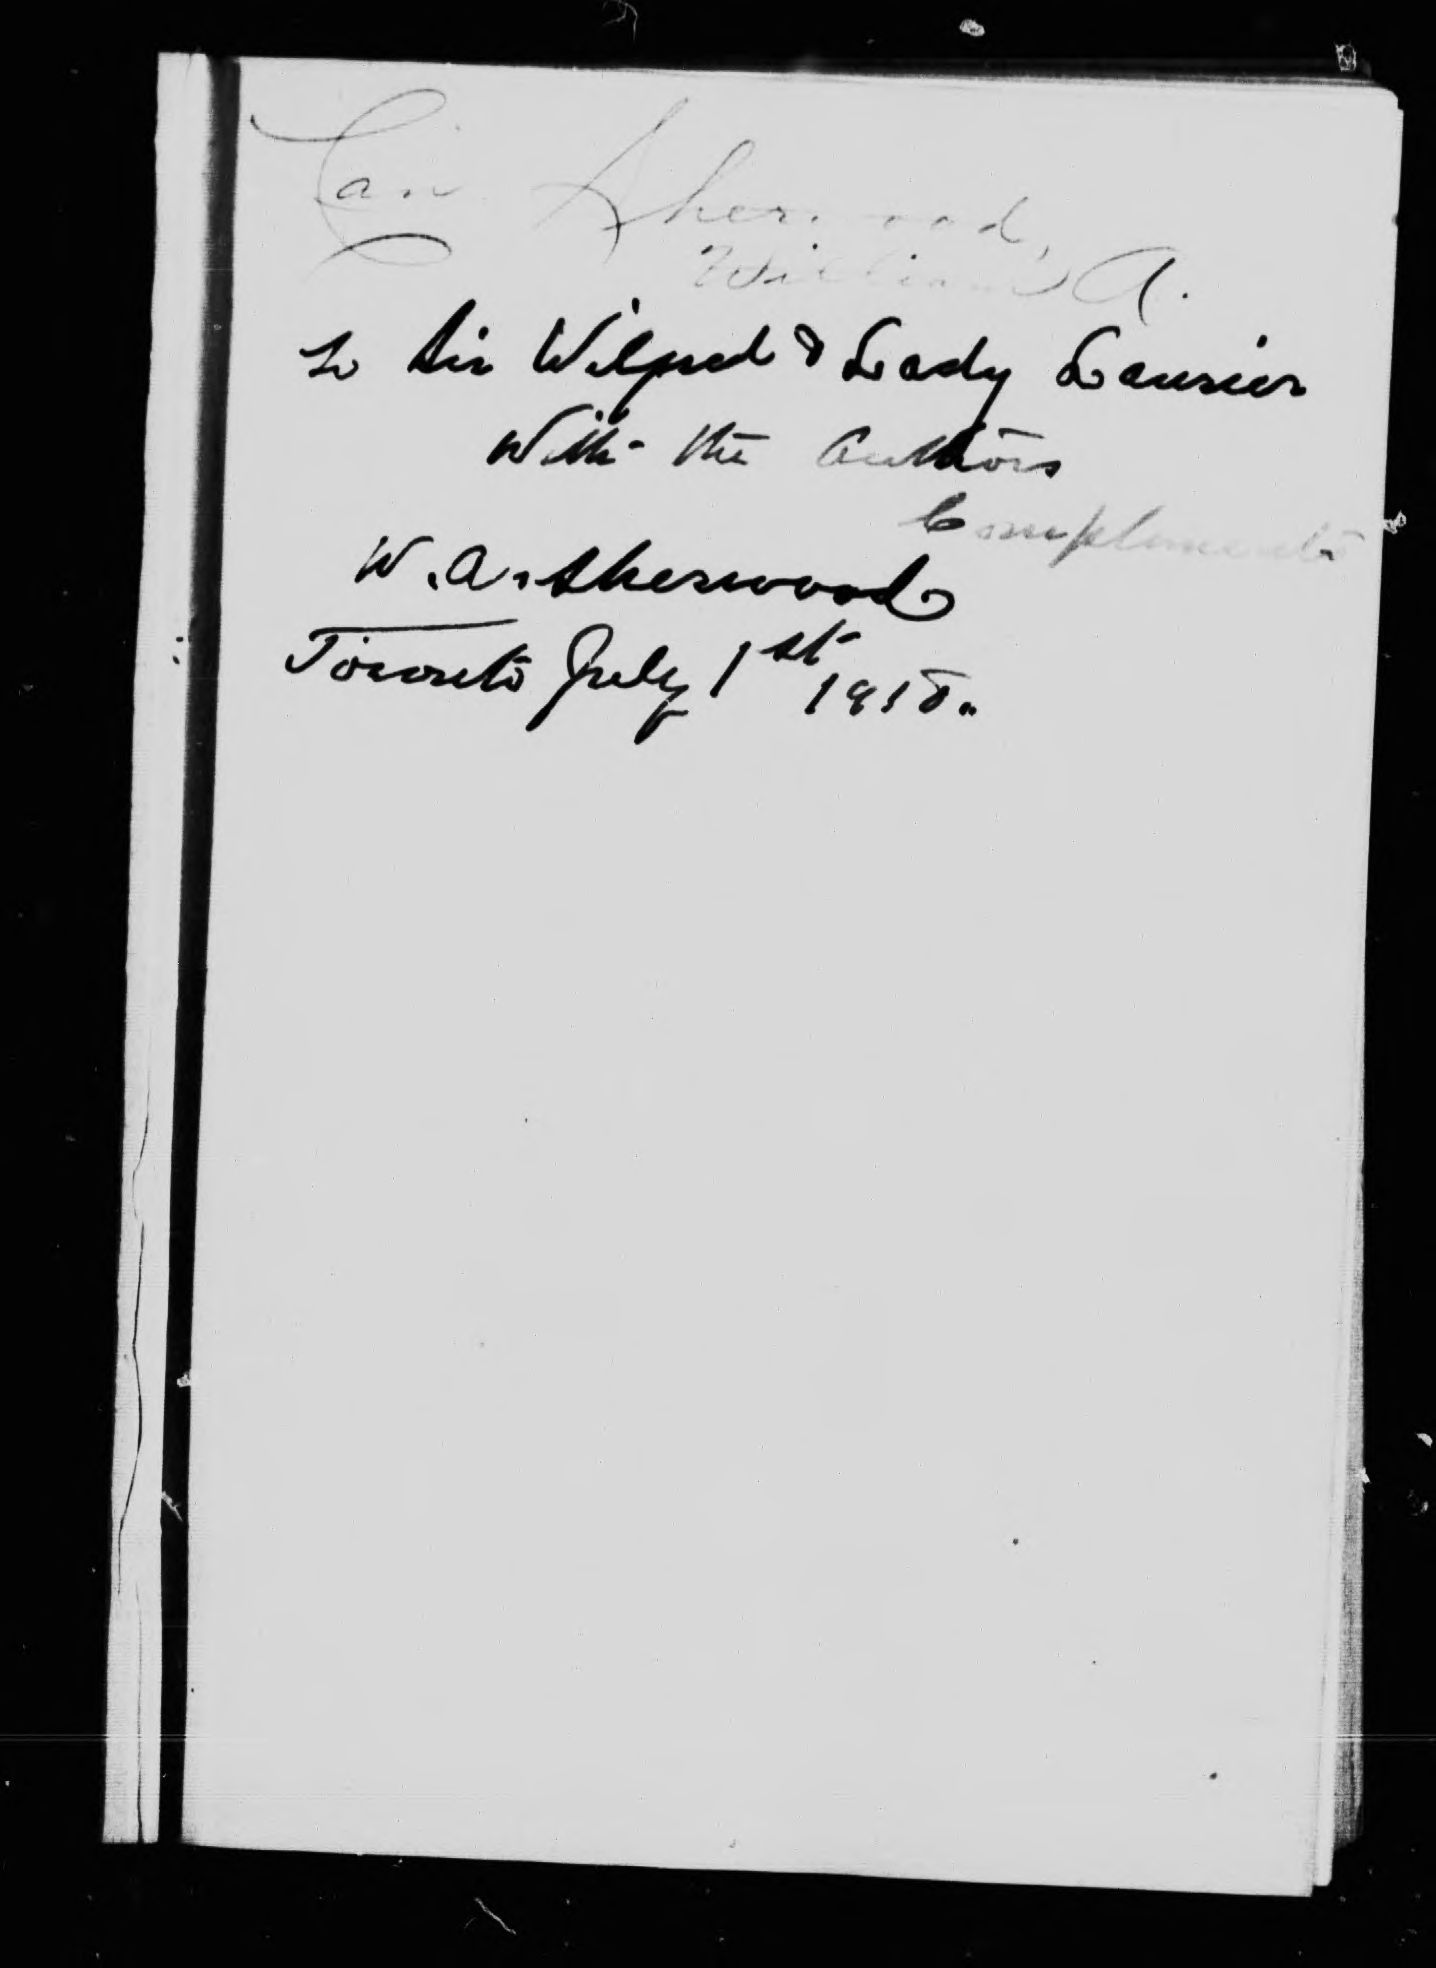 Can Sherwood,
William A.
To Sir Wilfred & Lady Laurier
With the Authors
Compliments
W. A. Sherwood
Toronto July 1st 1915.